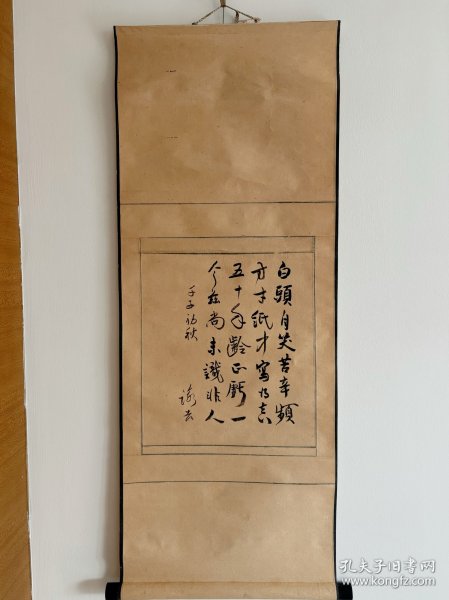 白頭自笑苦辛頻
方寸紙才寫得真
五十年齡正虧一
今年尚未識非人
壬子初秋
孔夫子旧书网
www.kongfz.com